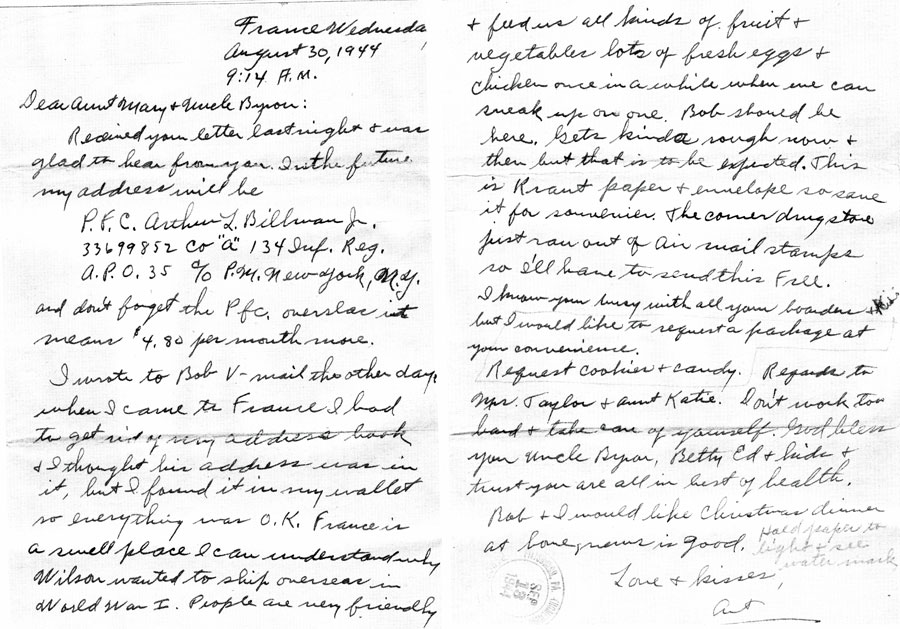 France Wednesday
August 30, 1944
9:14 A.M.
Dear Aunt Mary & Uncle Byron:
Received your letter last night & was
glad to hear from you. In the future
my address will be
P.F.C. Arthur L. Billman Jr.
33699852 Co "A" 134 Inf. Reg.
A.P.O. 35 c/o P.M. New York, N.Y.
and don't forget the Pfc. overseas it
means $4.80 per month more.
I wrote to Bob V-mail the other day,
when I came to France I had
to get rid of my address book
& I thought his address was in
it, but I found it in my wallet
so everything was O.K. France is
a swell place I can understand why
Wilson wanted to ship overseas in
World War I. People are very friendly
& feed us all kinds of fruit &
vegetables lots of fresh eggs &
chicken once in a while when we can
sneak up on one. Bob should be
here. Gets kinda rough now &
then but that is to be expected. This
is Kraut paper & envelope so save
it for souvenier. The corner drug store
just ran out of Air mail stamps
so I'll have to send this Free.
I know your busy with all your boarders &
but I would like to request a package at
your convenience.
Request cookies & candy. Regards to
Mrs. Taylor & Aunt Katie. Don't work too
hard & take care of yourself. God bless
you Uncle Byron, Betty Ed & kids &
trust you are all in best of health.
Bob & I would like Christmas dinner
at home, news is good.
Hold paper to
light & see
water mark
Love & kisses,
Art
SEP
1944